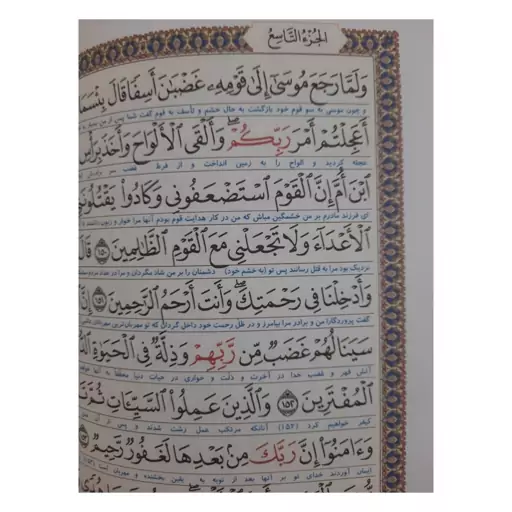 الجزء التاسع
وَلَمَّا رَجَعَ مُوسَىٰ إِلَىٰ قَوْمِهِۦ غَضْبَٰنَ أَسِفًا قَالَ بِئْسَمَا
و چون موسی به سوی قوم خود بازگشت به حال خشم و تأسف به قوم گفت شما پس از من
أَعَجِلْتُمْ أَمْرَ رَبِّكُمْ ۖ وَأَلْقَى ٱلْأَلْوَاحَ وَأَخَذَ بِرَأْسِ
عجله کردید و الواح را به زمین انداخت و از فرط غضب سر
ٱبْنَ أُمَّ إِنَّ ٱلْقَوْمَ ٱسْتَضْعَفُونِى وَكَادُوا۟ يَقْتُلُونَنِى
ای فرزند مادرم بر من خشمگین مباش که من در کار هدایت قوم بودم آنها مرا خوار و زبون داشتند
ٱلْأَعْدَآءَ وَلَا تَجْعَلْنِى مَعَ ٱلْقَوْمِ ٱلظَّٰلِمِينَ ﴿١٥٠﴾ قَالَ
نزدیک بود مرا به قتل رسانند پس تو (به خشم خود) دشمنان را بر من شاد مگردان و مرا در عداد مردم
وَأَدْخِلْنَا فِى رَحْمَتِكَ ۖ وَأَنتَ أَرْحَمُ ٱلرَّٰحِمِينَ ﴿١٥١﴾ إِنَّ
گفت پروردگارا من و برادر مرا بیامرز و در ظل رحمت خود داخل گردان که تو مهربان‌ترین
سَيَنَالُهُمْ غَضَبٌ مِّن رَّبِّهِمْ وَذِلَّةٌ فِى ٱلْحَيَوٰةِ
آتش قهر و غضب خدا در آخرت و ذلت و خواری در حیات دنیا
ٱلْمُفْتَرِينَ ﴿١٥٢﴾ وَٱلَّذِينَ عَمِلُوا۟ ٱلسَّيِّـَٔاتِ ثُمَّ
کیفر خواهیم کرد (۱۵۲) آنانکه مرتکب عمل زشت شدند و پس از آن
وَءَامَنُوٓا۟ إِنَّ رَبَّكَ مِنۢ بَعْدِهَا لَغَفُورٌ رَّحِيمٌ
ایمان آوردند خدای تو بر آنها بعد از توبه به یقین بخشنده و مهربان است